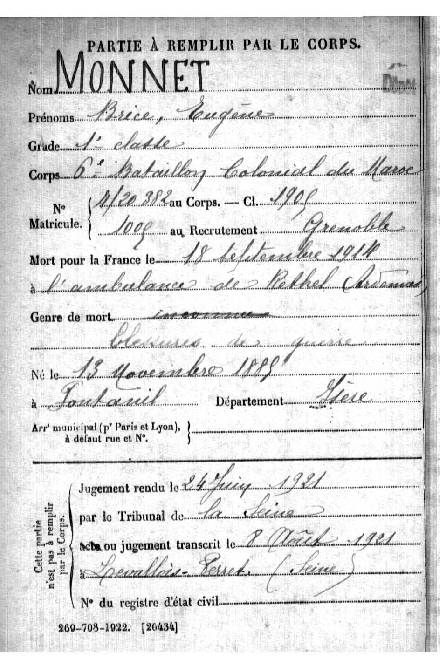 PARTIE À REMPLIR PAR LE CORPS.
Nom MONNET
Prénoms Brice, Eugène
Grade 1e classe
Corps 6e Bataillon Colonial du Maroc
N° Matricule. 4/20 382 au Corps. — Cl. 1909
1009 au Recrutement Grenoble
Mort pour la France le 18 septembre 1914
à l'ambulance de Rethel (Ardennes)
Genre de mort inconnue
blessures de guerre
Né le 13 Novembre 1889
à Fontanil Département Isère
Arrt municipal (pr Paris et Lyon), à défaut rue et N°.
Cette partie n'est pas à remplir par le Corps.
Jugement rendu le 24 Juin 1921
par le Tribunal de la Seine
acte ou jugement transcrit le 8 Août 1921
à Levallois-Perret (Seine)
N° du registre d'état civil
269-708-1922. [26434]